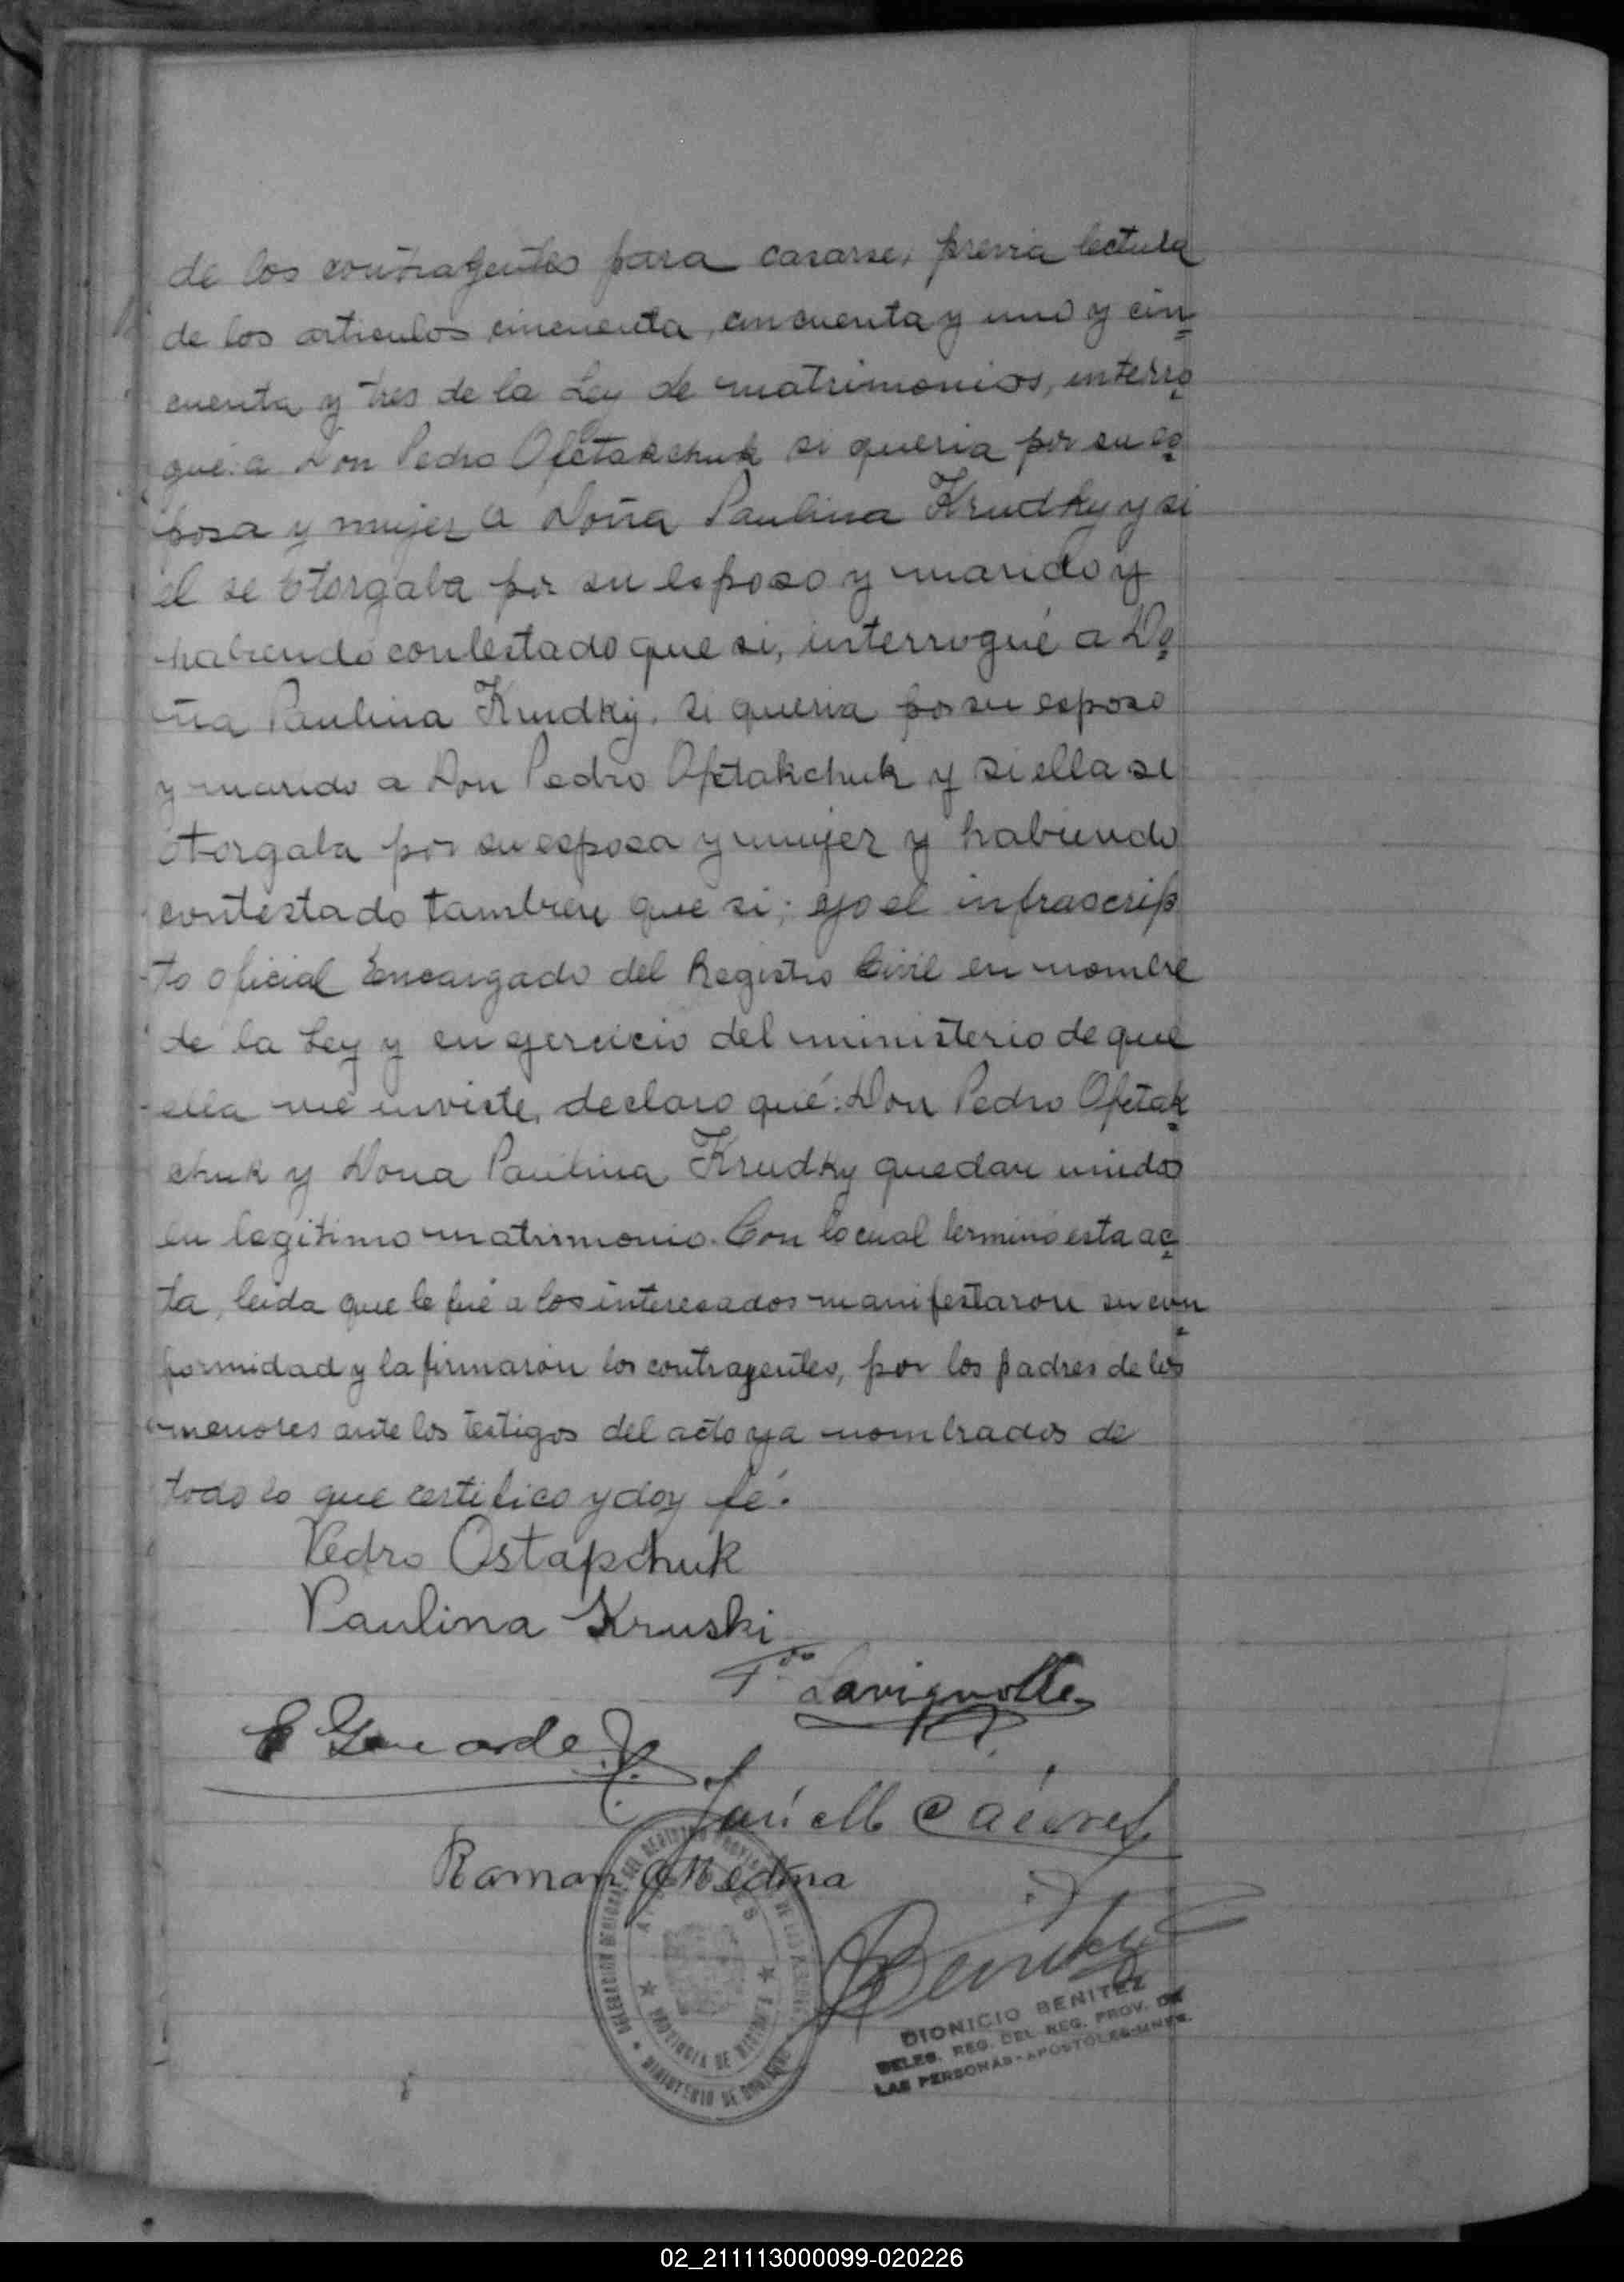 de los contragentes para casarse, previa lectura
de los articulos cincuenta, cincuenta y uno y cin
cuenta y tres de la Ley de matrimonios, interro
gué: a Don Pedro Ofetakchuk si queria por su es
posa y mujer a Doña Paulina Krudky y si
el se otorgaba por su esposo y marido y
habiendo contestado que si, interrogué a Do
ña Paulina Krudky, si queria por su esposo
y marido a Don Pedro Ofetakchuk y si ella se
otorgaba por su esposa y mujer y habiendo
contestado tambien que si; yo el infrascrip
to oficial Encargado del Registro Civil en nombre
de la Ley y en ejercicio del ministerio de que
ella me inviste, declaro qué: Don Pedro Ofetak
chuk y Dona Paulina Krudky quedan unidos
en legitimo matrimonio. Con lo cual terminó esta ac
ta, leida que le fué a los interesados manifestaron su con
formidad y la firmaron los contragentes, por los padres de los
menores ante los testigos del acto ya nombrados de
todo lo que certifico y doy fé.
Pedro Ostapchuk
Paulina Kruski
Lavignolle
José M Cáceres
Ramon Medina
Benitez
DIONICIO BENITEZ
DELEG. REG. DEL REG. PROV. DE
LAS PERSONAS - APOSTOLES - MNES.
PROVINCIA DE MISIONES
MINISTERIO DE GOBIERNO
02_211113000099-020226